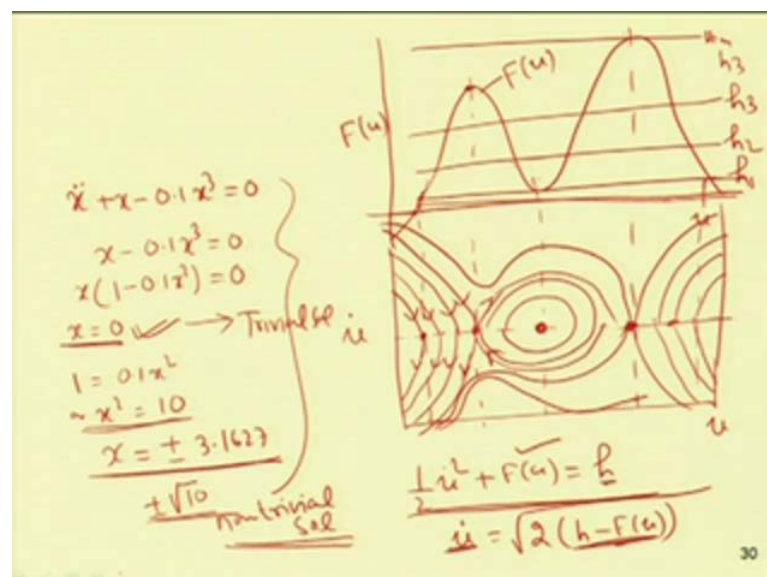 ẍ + x - 0.1x³ = 0
x - 0.1x³ = 0
x(1 - 0.1x²) = 0
x = 0 ✓ → Trivial sol
1 = 0.1x²
~ x² = 10
x = ± 3.1627
± √10
nontrivial
sol
F(u)
F(u)
h3
h3
h2
h1
u
u̇
u
½ u̇² + F(u) = h
u̇ = √2(h - F(u))
30